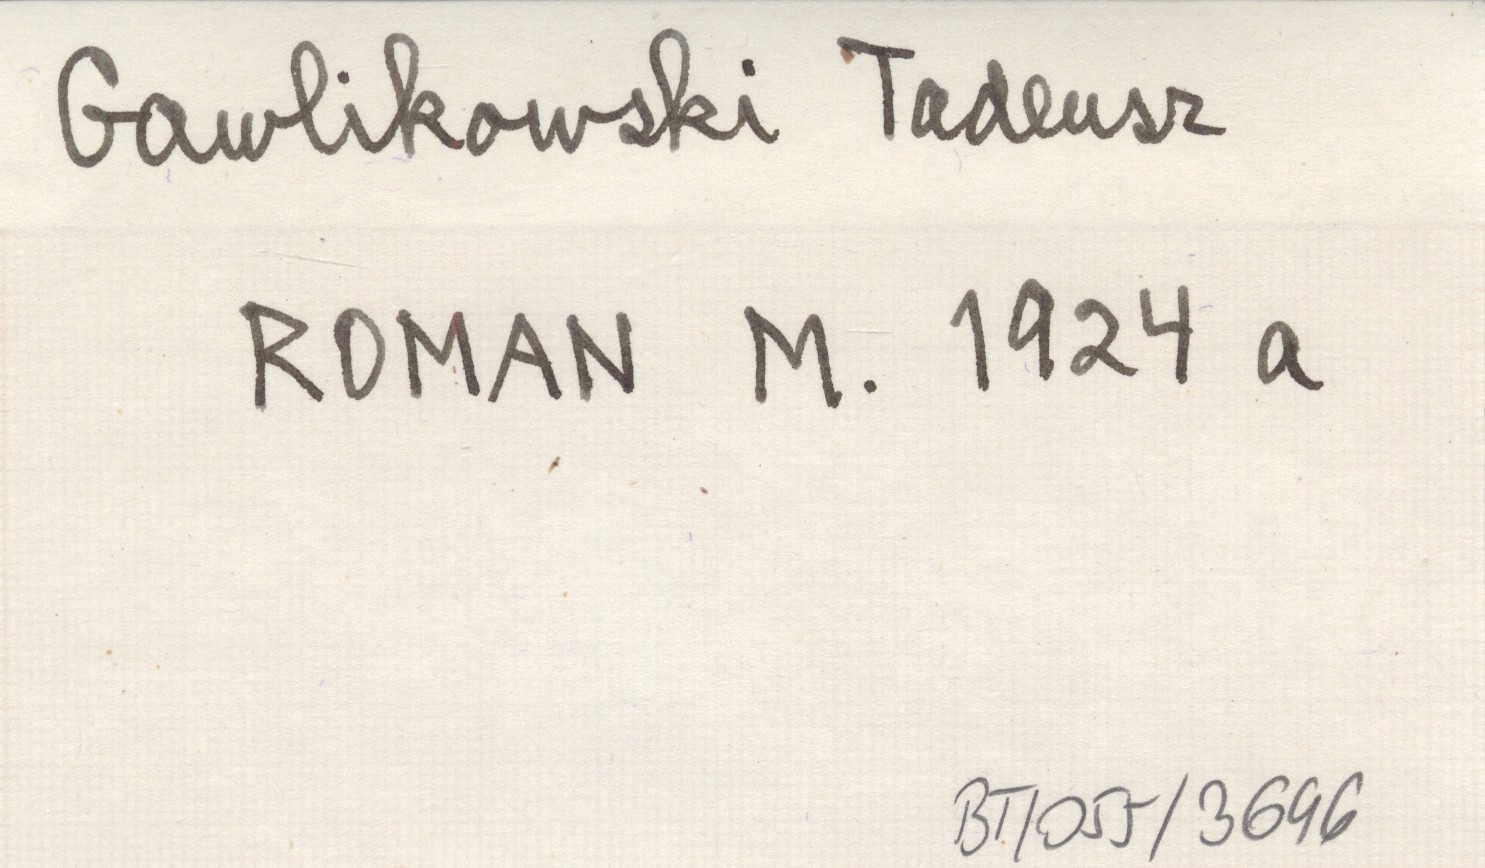 Gawlikowski Tadeusz
ROMAN M. 1924 a
BT/OSS/3696